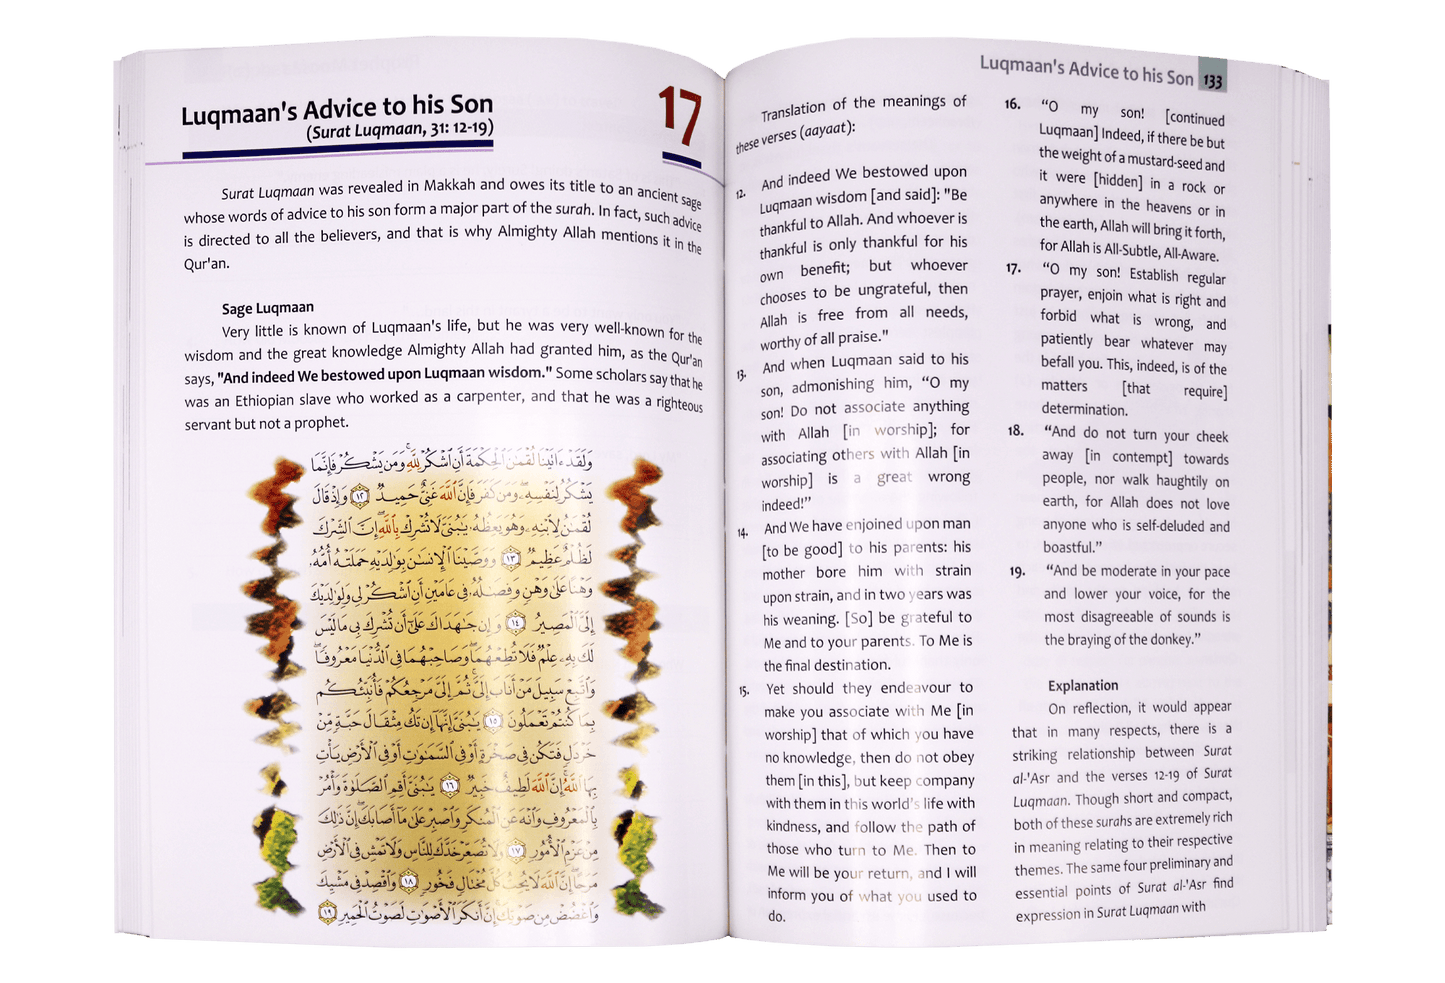 Luqmaan's Advice to his Son
(Surat Luqmaan, 31: 12-19)
17
Surat Luqmaan was revealed in Makkah and owes its title to an ancient sage
whose words of advice to his son form a major part of the surah. In fact, such advice
is directed to all the believers, and that is why Almighty Allah mentions it in the
Qur'an.
Sage Luqmaan
Very little is known of Luqmaan's life, but he was very well-known for the
wisdom and the great knowledge Almighty Allah had granted him, as the Qur'an
says, "And indeed We bestowed upon Luqmaan wisdom." Some scholars say that he
was an Ethiopian slave who worked as a carpenter, and that he was a righteous
servant but not a prophet.
وَلَقَدْ ءَاتَيْنَا لُقْمَٰنَ ٱلْحِكْمَةَ أَنِ ٱشْكُرْ لِلَّهِ وَمَن يَشْكُرْ فَإِنَّمَا
يَشْكُرُ لِنَفْسِهِۦ وَمَن كَفَرَ فَإِنَّ ٱللَّهَ غَنِىٌّ حَمِيدٌ ١٢ وَإِذْ قَالَ
لُقْمَٰنُ لِٱبْنِهِۦ وَهُوَ يَعِظُهُۥ يَٰبُنَىَّ لَا تُشْرِكْ بِٱللَّهِ إِنَّ ٱلشِّرْكَ
لَظُلْمٌ عَظِيمٌ ١٣ وَوَصَّيْنَا ٱلْإِنسَٰنَ بِوَٰلِدَيْهِ حَمَلَتْهُ أُمُّهُۥ
وَهْنًا عَلَىٰ وَهْنٍ وَفِصَٰلُهُۥ فِى عَامَيْنِ أَنِ ٱشْكُرْ لِى وَلِوَٰلِدَيْكَ
إِلَىَّ ٱلْمَصِيرُ ١٤ وَإِن جَٰهَدَاكَ عَلَىٰٓ أَن تُشْرِكَ بِى مَا لَيْسَ
لَكَ بِهِۦ عِلْمٌ فَلَا تُطِعْهُمَا وَصَاحِبْهُمَا فِى ٱلدُّنْيَا مَعْرُوفًا
وَٱتَّبِعْ سَبِيلَ مَنْ أَنَابَ إِلَىَّ ثُمَّ إِلَىَّ مَرْجِعُكُمْ فَأُنَبِّئُكُم
بِمَا كُنتُمْ تَعْمَلُونَ ١٥ يَٰبُنَىَّ إِنَّهَآ إِن تَكُ مِثْقَالَ حَبَّةٍ مِّنْ
خَرْدَلٍ فَتَكُن فِى صَخْرَةٍ أَوْ فِى ٱلسَّمَٰوَٰتِ أَوْ فِى ٱلْأَرْضِ يَأْتِ
بِهَا ٱللَّهُ إِنَّ ٱللَّهَ لَطِيفٌ خَبِيرٌ ١٦ يَٰبُنَىَّ أَقِمِ ٱلصَّلَوٰةَ وَأْمُرْ
بِٱلْمَعْرُوفِ وَٱنْهَ عَنِ ٱلْمُنكَرِ وَٱصْبِرْ عَلَىٰ مَآ أَصَابَكَ إِنَّ ذَٰلِكَ
مِنْ عَزْمِ ٱلْأُمُورِ ١٧ وَلَا تُصَعِّرْ خَدَّكَ لِلنَّاسِ وَلَا تَمْشِ فِى ٱلْأَرْضِ
مَرَحًا إِنَّ ٱللَّهَ لَا يُحِبُّ كُلَّ مُخْتَالٍ فَخُورٍ ١٨ وَٱقْصِدْ فِى مَشْيِكَ
وَٱغْضُضْ مِن صَوْتِكَ إِنَّ أَنكَرَ ٱلْأَصْوَٰتِ لَصَوْتُ ٱلْحَمِيرِ ١٩
Luqmaan's Advice to his Son 133
Translation of the meanings of
these verses (aayaat):
12. And indeed We bestowed upon
Luqmaan wisdom [and said]: "Be
thankful to Allah. And whoever is
thankful is only thankful for his
own benefit; but whoever
chooses to be ungrateful, then
Allah is free from all needs,
worthy of all praise."
13. And when Luqmaan said to his
son, admonishing him, “O my
son! Do not associate anything
with Allah [in worship]; for
associating others with Allah [in
worship] is a great wrong
indeed!”
14. And We have enjoined upon man
[to be good] to his parents: his
mother bore him with strain
upon strain, and in two years was
his weaning. [So] be grateful to
Me and to your parents. To Me is
the final destination.
15. Yet should they endeavour to
make you associate with Me [in
worship] that of which you have
no knowledge, then do not obey
them [in this], but keep company
with them in this world’s life with
kindness, and follow the path of
those who turn to Me. Then to
Me will be your return, and I will
inform you of what you used to
do.
16. “O my son! [continued
Luqmaan] Indeed, if there be but
the weight of a mustard-seed and
it were [hidden] in a rock or
anywhere in the heavens or in
the earth, Allah will bring it forth,
for Allah is All-Subtle, All-Aware.
17. “O my son! Establish regular
prayer, enjoin what is right and
forbid what is wrong, and
patiently bear whatever may
befall you. This, indeed, is of the
matters [that require]
determination.
18. “And do not turn your cheek
away [in contempt] towards
people, nor walk haughtily on
earth, for Allah does not love
anyone who is self-deluded and
boastful.”
19. “And be moderate in your pace
and lower your voice, for the
most disagreeable of sounds is
the braying of the donkey.”
Explanation
On reflection, it would appear
that in many respects, there is a
striking relationship between Surat
al-'Asr and the verses 12-19 of Surat
Luqmaan. Though short and compact,
both of these surahs are extremely rich
in meaning relating to their respective
themes. The same four preliminary and
essential points of Surat al-'Asr find
expression in Surat Luqmaan with